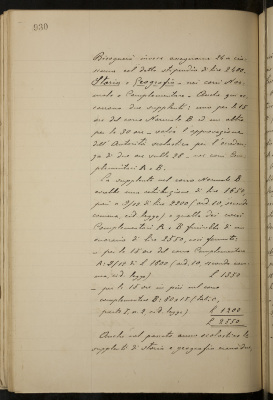 930
Bisognerà invece assegnarne 26 a cia-
scuna col detto stipendio di lire 2400.
Storia e Geografia - nei corsi Nor-
male e Complementare - Anche qui oc-
corrono due supplenti: una per le 15
ore del corso Normale B ed un'altra
per le 30 ore - salvo l'approvazione
dell'Autorità scolastica per l'acceden-
za di due ore sulle 28 - nei corsi Com-
plementari A e B.
La supplente nel corso Normale B
avrebbe una retribuzione di lire 1650,
pari a 3/4 di lire 2200 (art. 10, secondo
comma, ed. legge) e quella dei corsi
Complementari A e B fruirebbe di un
onorario di lire 2550, così formato:
- per le 15 ore del corso Complementare
A: 3/4 di £ 1800 (art. 10, secondo com-
ma, ed. legge) £ 1350
- per le 15 ore in più nel corso
complementare B: 80 x 15 (lett. c,
parte I, n. 2, ed. legge) £ 1200
£ 2550
Anche nel passato anno scolastico le
supplenti di storia e geografia